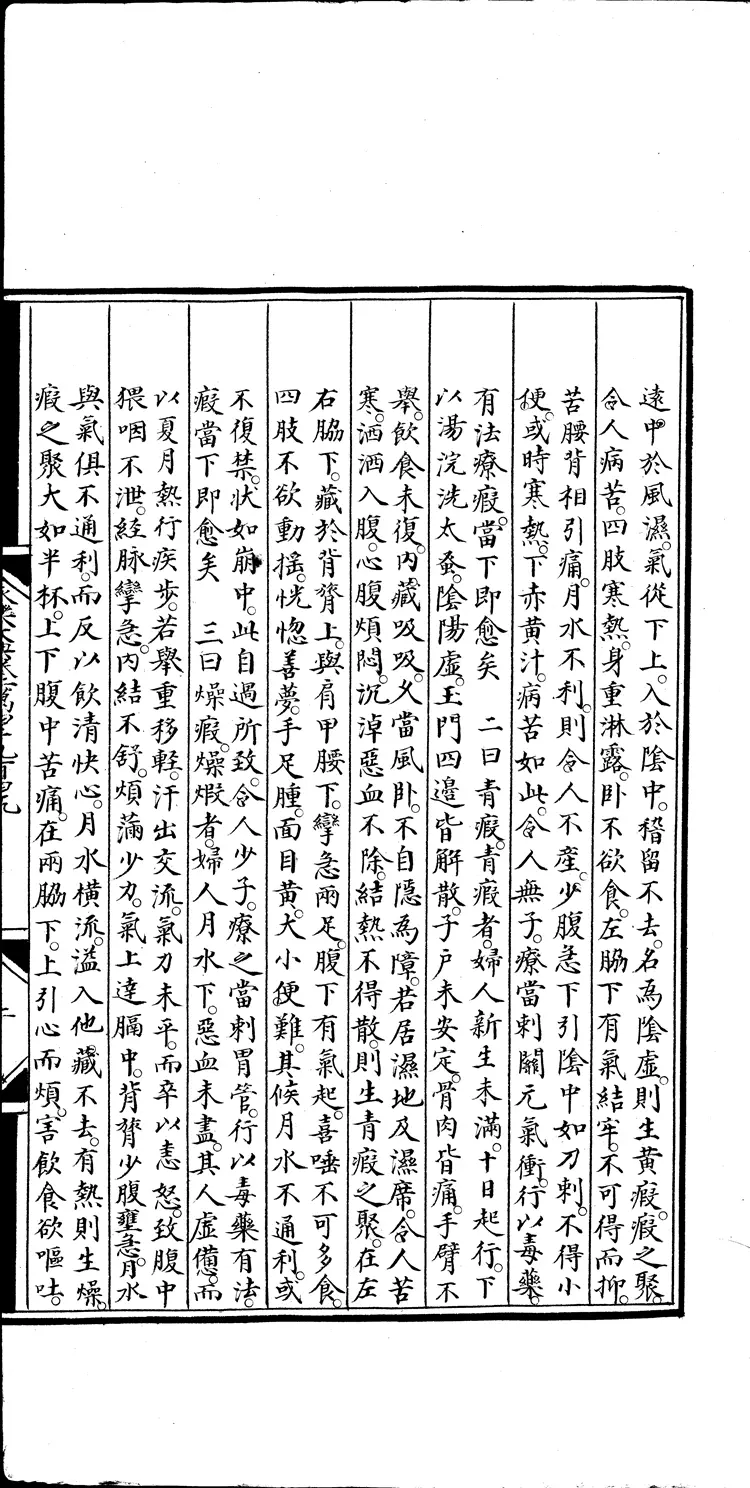 遠中於風濕。氣從下上。入於陰中。稽留不去。名為陰虛。則生黃瘕。瘕之聚。
令人病苦。四肢寒熱。身重淋露。卧不欲食。左脇下有氣結牢。不可得而抑。
苦腰背相引痛。月水不利。則令人不產。少腹急下引陰中如刀刺。不得小
便。或時寒熱。下赤黃汁。病苦如此。令人無子。療當刺關元氣衝。行以毒藥。
有法療瘕。當下即愈矣　二曰青瘕。青瘕者。婦人新生未滿。十日起行。下
以湯浣洗太蚤。陰陽虛。玉門四邊皆解散。子户未安定。骨肉皆痛。手臂不
舉。飲食未復。内藏吸吸。又當風卧。不自隱為障。若居濕地及濕席。令人苦
寒。洒洒入腹。心腹煩悶。沉淖惡血不除。結熱不得散。則生青瘕之聚。在左
右脇下。藏於背膂上。與肩甲腰下。攣急兩足。腹下有氣起。喜唾不可多食。
四肢不欲動搖。恍惚善夢。手足腫。面目黃。大小便難。其候月水不通利。或
不復禁。狀如崩中。此自過所致。令人少子。療之當刺胃管。行以毒藥有法。
瘕當下即愈矣　三曰燥瘕。燥瘕者。婦人月水下。惡血未盡。其人虛憊。而
以夏月熱行疾步。若舉重移輕。汗出交流。氣力未平。而卒以恚怒。致腹中
猥咽不泄。經脉攣急。内結不舒。煩滿少力。氣上達膈中。背膂少腹壅急。月水
與氣俱不通利。而反以飲清快心。月水橫流。溢入他藏不去。有熱則生燥。
瘕之聚大如半杯。上下腹中苦痛。在兩脇下。上引心而煩。害飲食欲嘔吐。